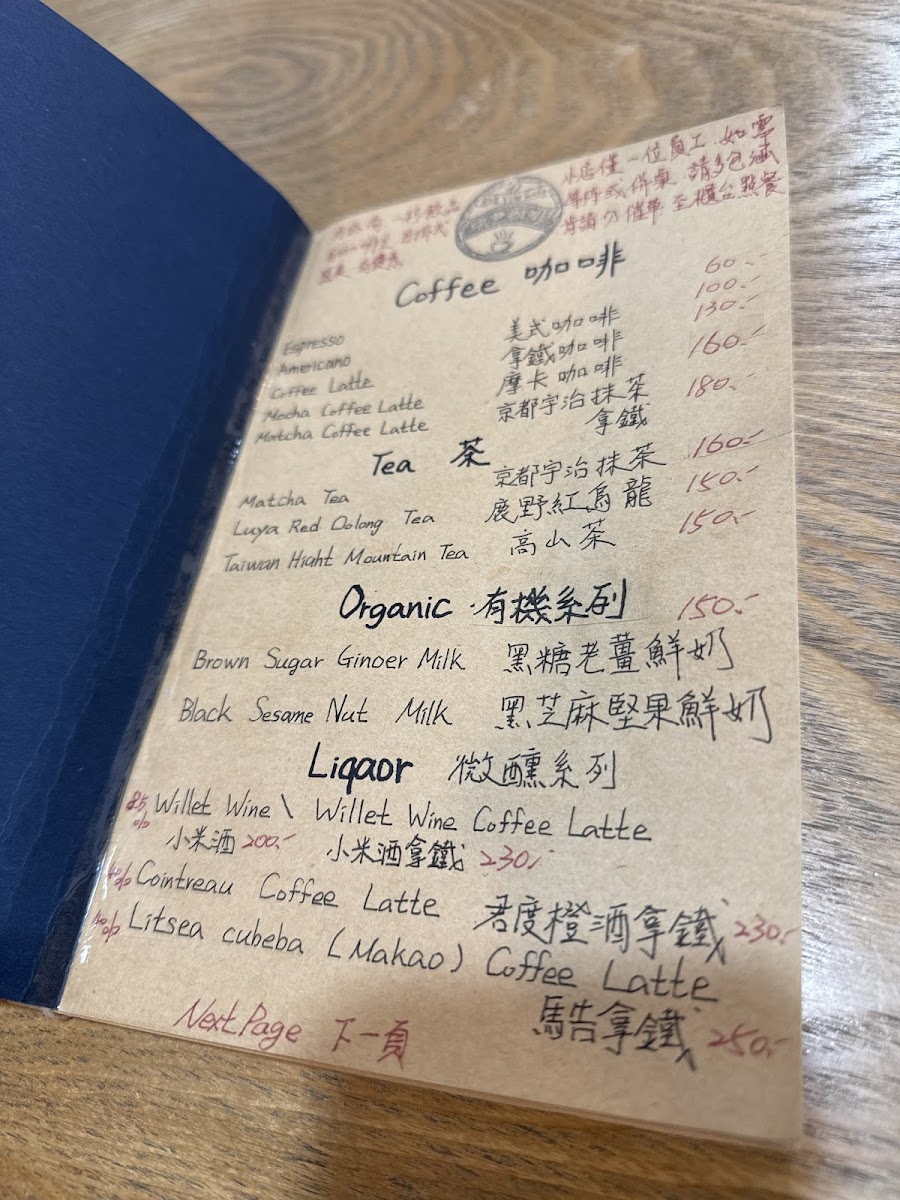 小店僅一位員工,如需
等待或併桌,請多包涵
至櫃台點餐
Coffee 咖啡
Espresso 60.-
Americano 美式咖啡 100.-
Coffee Latte 拿鐵咖啡 130.-
Mocha Coffee Latte 摩卡咖啡 160.-
Matcha Coffee Latte 京都宇治抹茶 180.-
拿鐵
Tea 茶
Matcha Tea 京都宇治抹茶 160.-
Luya Red Oolong Tea 鹿野紅烏龍 150.-
Taiwan Hight Mountain Tea 高山茶 150.-
Organic 有機系列 150.-
Brown Sugar Ginoer Milk 黑糖老薑鮮奶
Black Sesame Nut Milk 黑芝麻堅果鮮奶
Liqaor 微醺系列
Willet Wine \ Willet Wine Coffee Latte
小米酒 200.- 小米酒拿鐵 230.-
Cointreau Coffee Latte 君度橙酒拿鐵 230.-
Litsea cubeba (Makao) Coffee Latte
馬告拿鐵 250.-
Next Page 下一頁